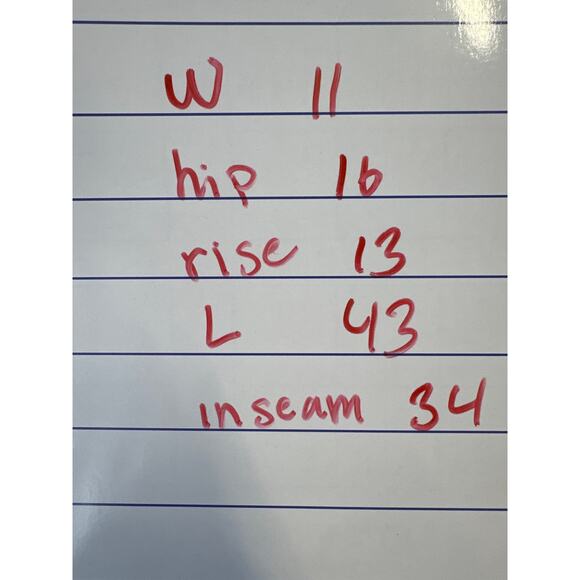 W 11
hip 16
rise 13
L 43
inseam 34